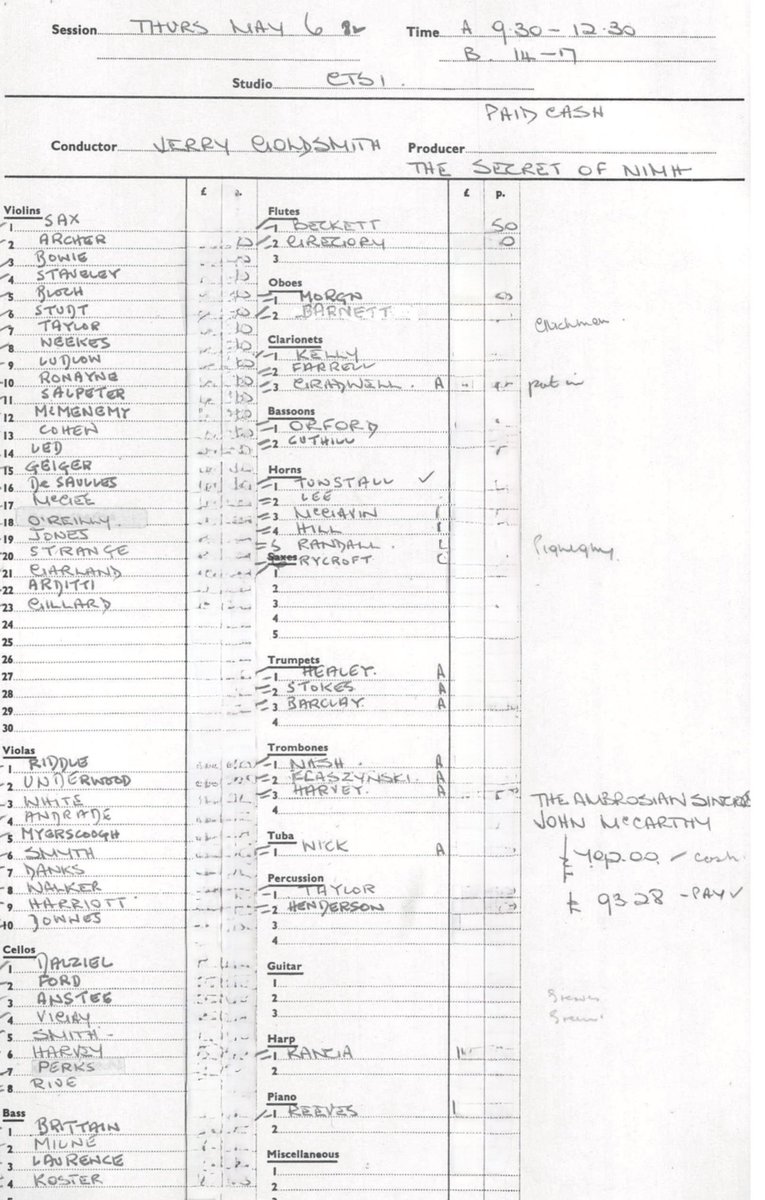 Session THURS MAY 6 82 Time A 9.30 - 12.30
B. 14-17
Studio CTS 1.
PAID CASH
Conductor JERRY GOLDSMITH Producer
THE SECRET OF NIMH
£ £ p.
Violins
1 SAX
2 ARCHER
3 BOWIE
4 STAVELEY
5 BLOCH
6 STUDT
7 TAYLOR
8 WEEKES
9 LUDLOW
10 RONAYNE
11 SALPETER
12 McMENEMY
13 COHEN
14 LED
15 GEIGER
16 De SAULLES
17 McGEE
18 O'REILLY
19 JONES
20 STRANGE
21 GARLAND
22 ARDITTI
23 GILLARD
24
25
26
27
28
29
30
Violas
1 RIDDLE
2 UNDERWOOD
3 WHITE
4 ANDRADE
5 MYERSCOUGH
6 SMYTH
7 DANKS
8 WALKER
9 HARRIOTT
10 DOWNES
Cellos
1 DALZIEL
2 FORD
3 ANSTEE
4 VIGAY
5 SMITH
6 HARVEY
7 PERKS
8
Bass
1 BRITTAIN
2 MILNE
3 LAURENCE
4 KOSTER
Flutes
1 BECKETT 50
2 GREGORY
3
Oboes
1 MORGN
2 BARNETT
Clarionets
1 KELLY
2 FARRELL
3 GRADWELL. A put in
Bassoons
1 ORFORD
2 CUTHILL
Horns
1 TUNSTALL ✓
2 LEE
3 McGAVIN
4 HILL
5 RANDALL.
Saxes RYCROFT
1
2
3
4
5
Trumpets
1 HEALEY. A
2 STOKES A
3 BARCLAY. A
4
Trombones
1 NASH. A
2 FLASZYNSKI. A
3 HARVEY. A
4
Tuba
1 WICK A
Percussion
1 TAYLOR
2 HENDERSON
3
4
Guitar
1
2
3
Harp
1
2
Piano
1 REEVES
2
Miscellaneous
1
2
THE AMBROSIAN
JOHN McCARTHY
cash
£ 93.28 - PAY ✓